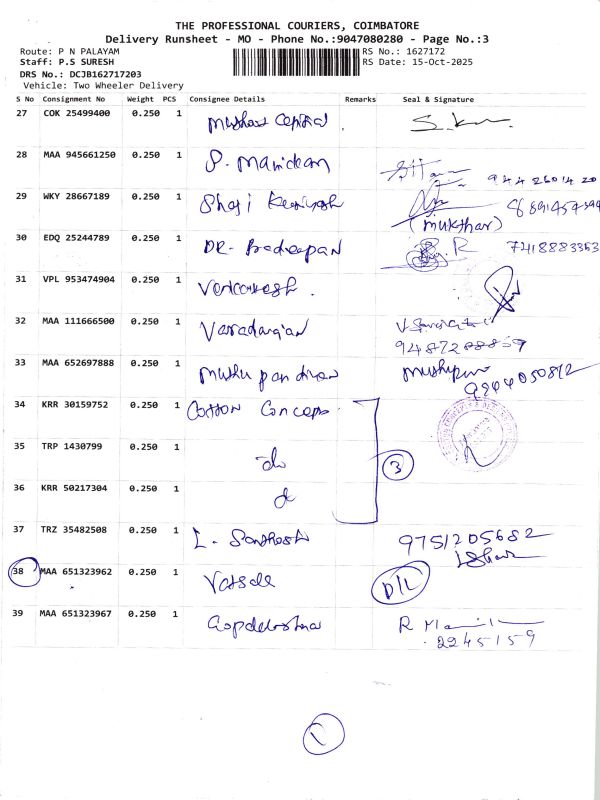 THE PROFESSIONAL COURIERS, COIMBATORE
Delivery Runsheet - MO - Phone No.:9047080280 - Page No.:3
Route: P N PALAYAM RS No.: 1627172
Staff: P.S SURESH RS Date: 15-Oct-2025
DRS No.: DCJB162717203
Vehicle: Two Wheeler Delivery
S No Consignment No Weight PCS Consignee Details Remarks Seal & Signature
27 COK 25499400 0.250 1
28 MAA 945661250 0.250 1 P. Manickam
29 WKY 28667189 0.250 1 Shaji
(mukthar)
30 EDQ 25244789 0.250 1 DR. R 7418883363
31 VPL 953474904 0.250 1 Venkatesh.
32 MAA 111666500 0.250 1 Varadarajan
33 MAA 652697888 0.250 1 Muthu pandian
34 KRR 30159752 0.250 1 Cotton Concepts
35 TRP 1430799 0.250 1 do 3
36 KRR 50217304 0.250 1 do
37 TRZ 35482508 0.250 1 L. Santhosh 9751205682
38 MAA 651323962 0.250 1 D/L
39 MAA 651323967 0.250 1 R
2245159
1